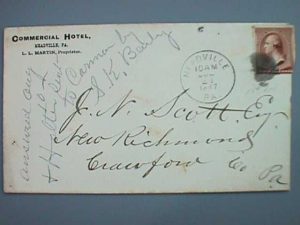 COMMERCIAL HOTEL,
MEADVILLE, PA.
L. L. MARTIN, Proprietor.
MEADVILLE
10 AM
1887
PA
to Cannon by
S. R.
answered Aug
J. N. Scott Esq
New Richmond
Crawford Co Pa